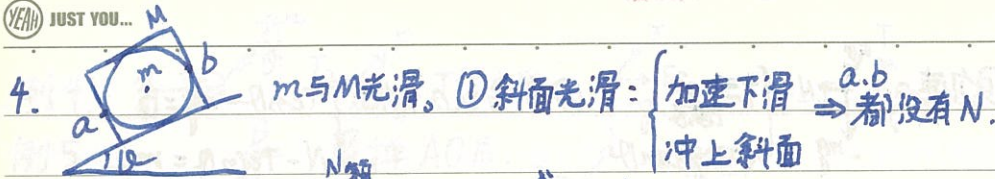 YEAH JUST YOU...
M
m
b
4.
m与M光滑。①斜面光滑：
加速下滑
冲上斜面
⇒ a.b 都没有N.
a
θ